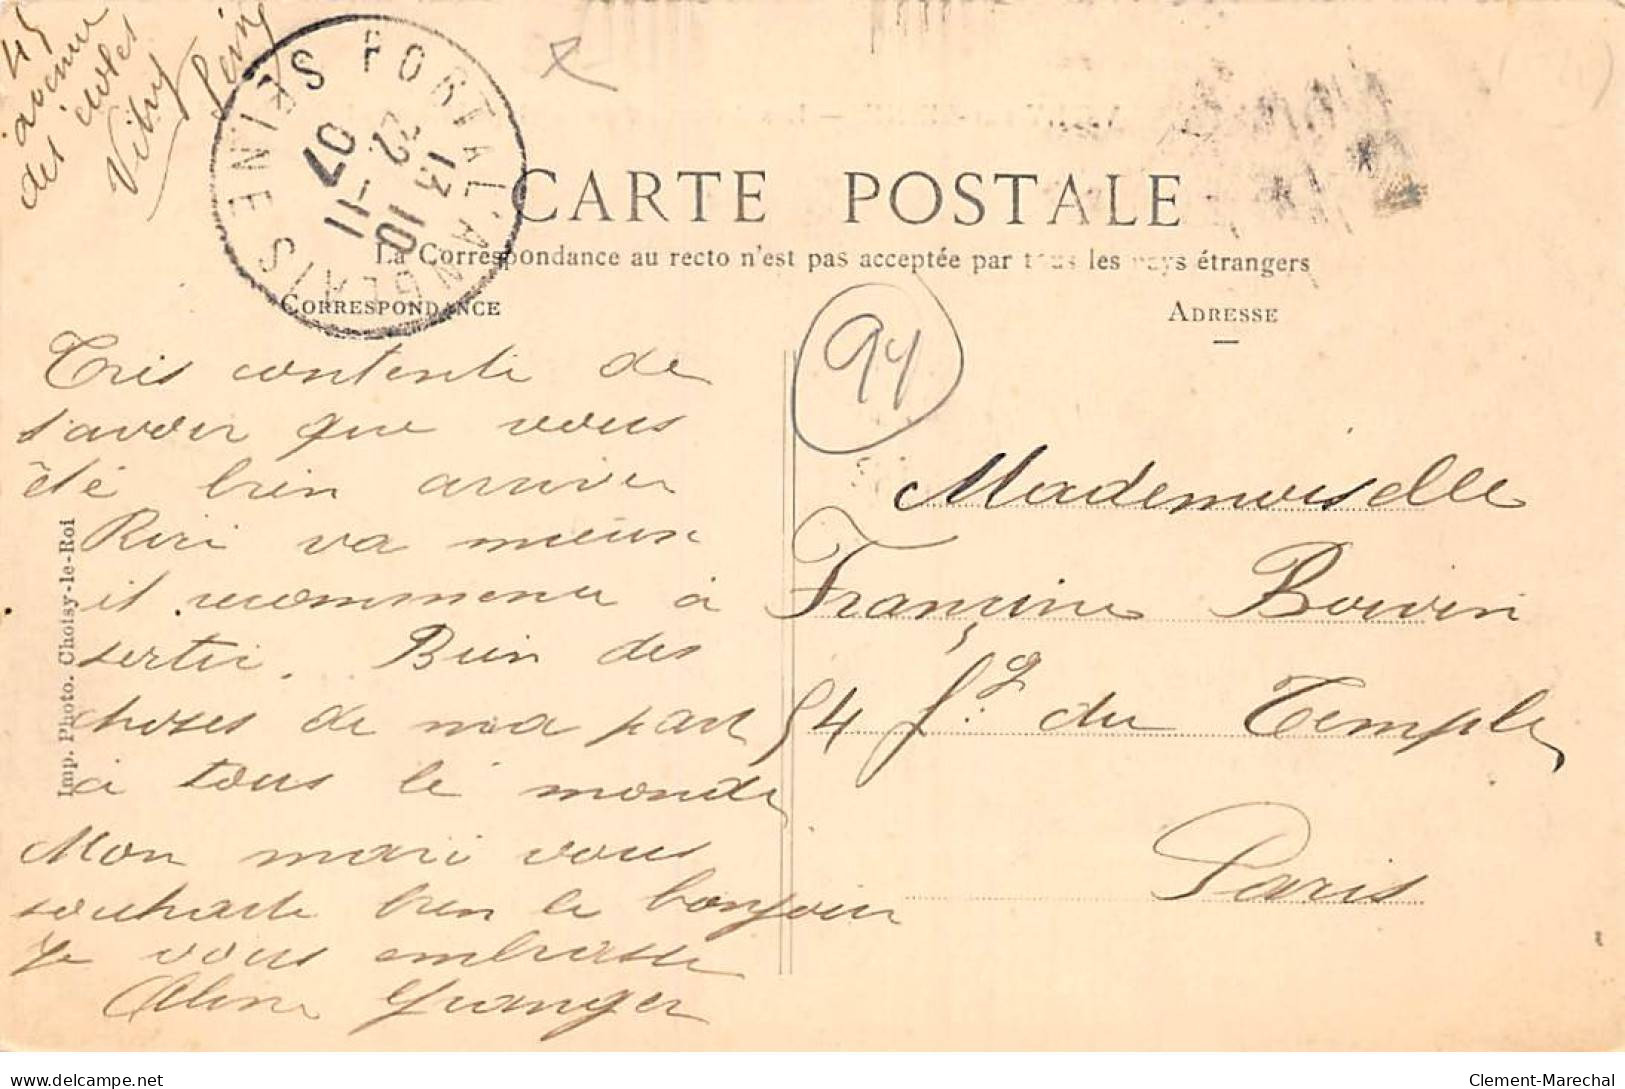 45
avenue
des écoles
Vitry Seine
PORT A L'ANGLAIS
SEINE
13 10
22 -11
07
CARTE POSTALE
La Correspondance au recto n'est pas acceptée par tous les pays étrangers
CORRESPONDANCE
ADRESSE
94
Très contente de
savoir que vous
été bien arriver
Riri va mieux
il recommence à
sortir. Bien des
choses de ma part
à tous le monde
Mon mari vous
souhaite bien le bonjour
Je vous embrasse
Aline Granger
Mademoiselle
Francine Bowin
54 fg du Temple
Paris
Imp. Photo. Choisy-le-Roi
delcampe.net
Clement-Marechal